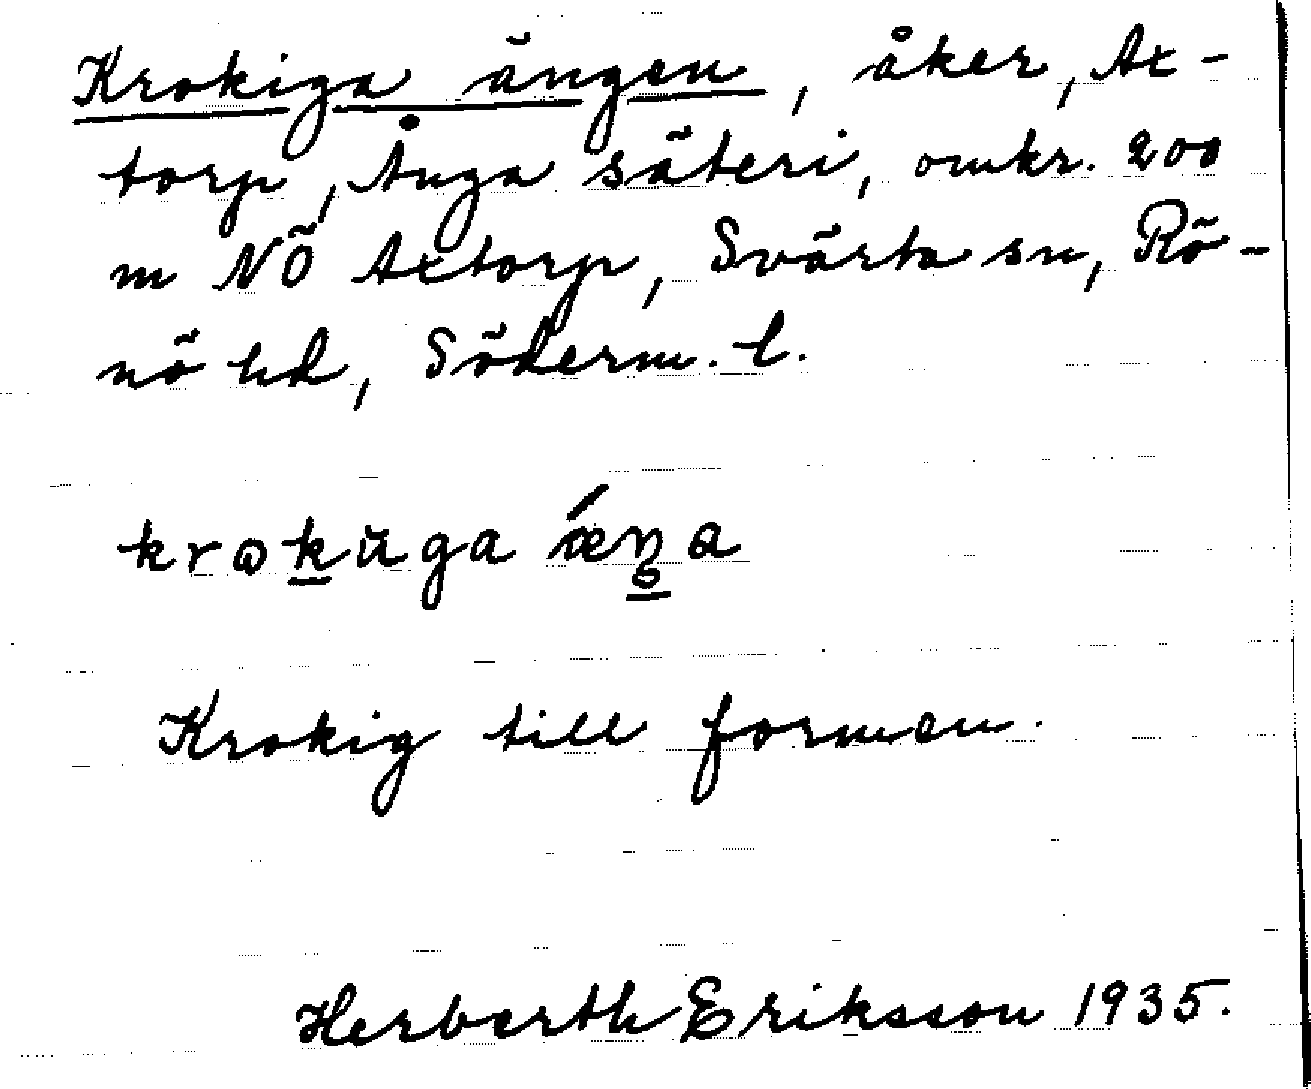 Krokiga ängen, åker, Ax-
torp, Ånga säteri, omkr. 200
m NÖ Axtorp, Svärta sn, Rö-
nö hd, Söderm. l.
krokuga ǽŋa
Krokig till formen.
Herberth Eriksson 1935.